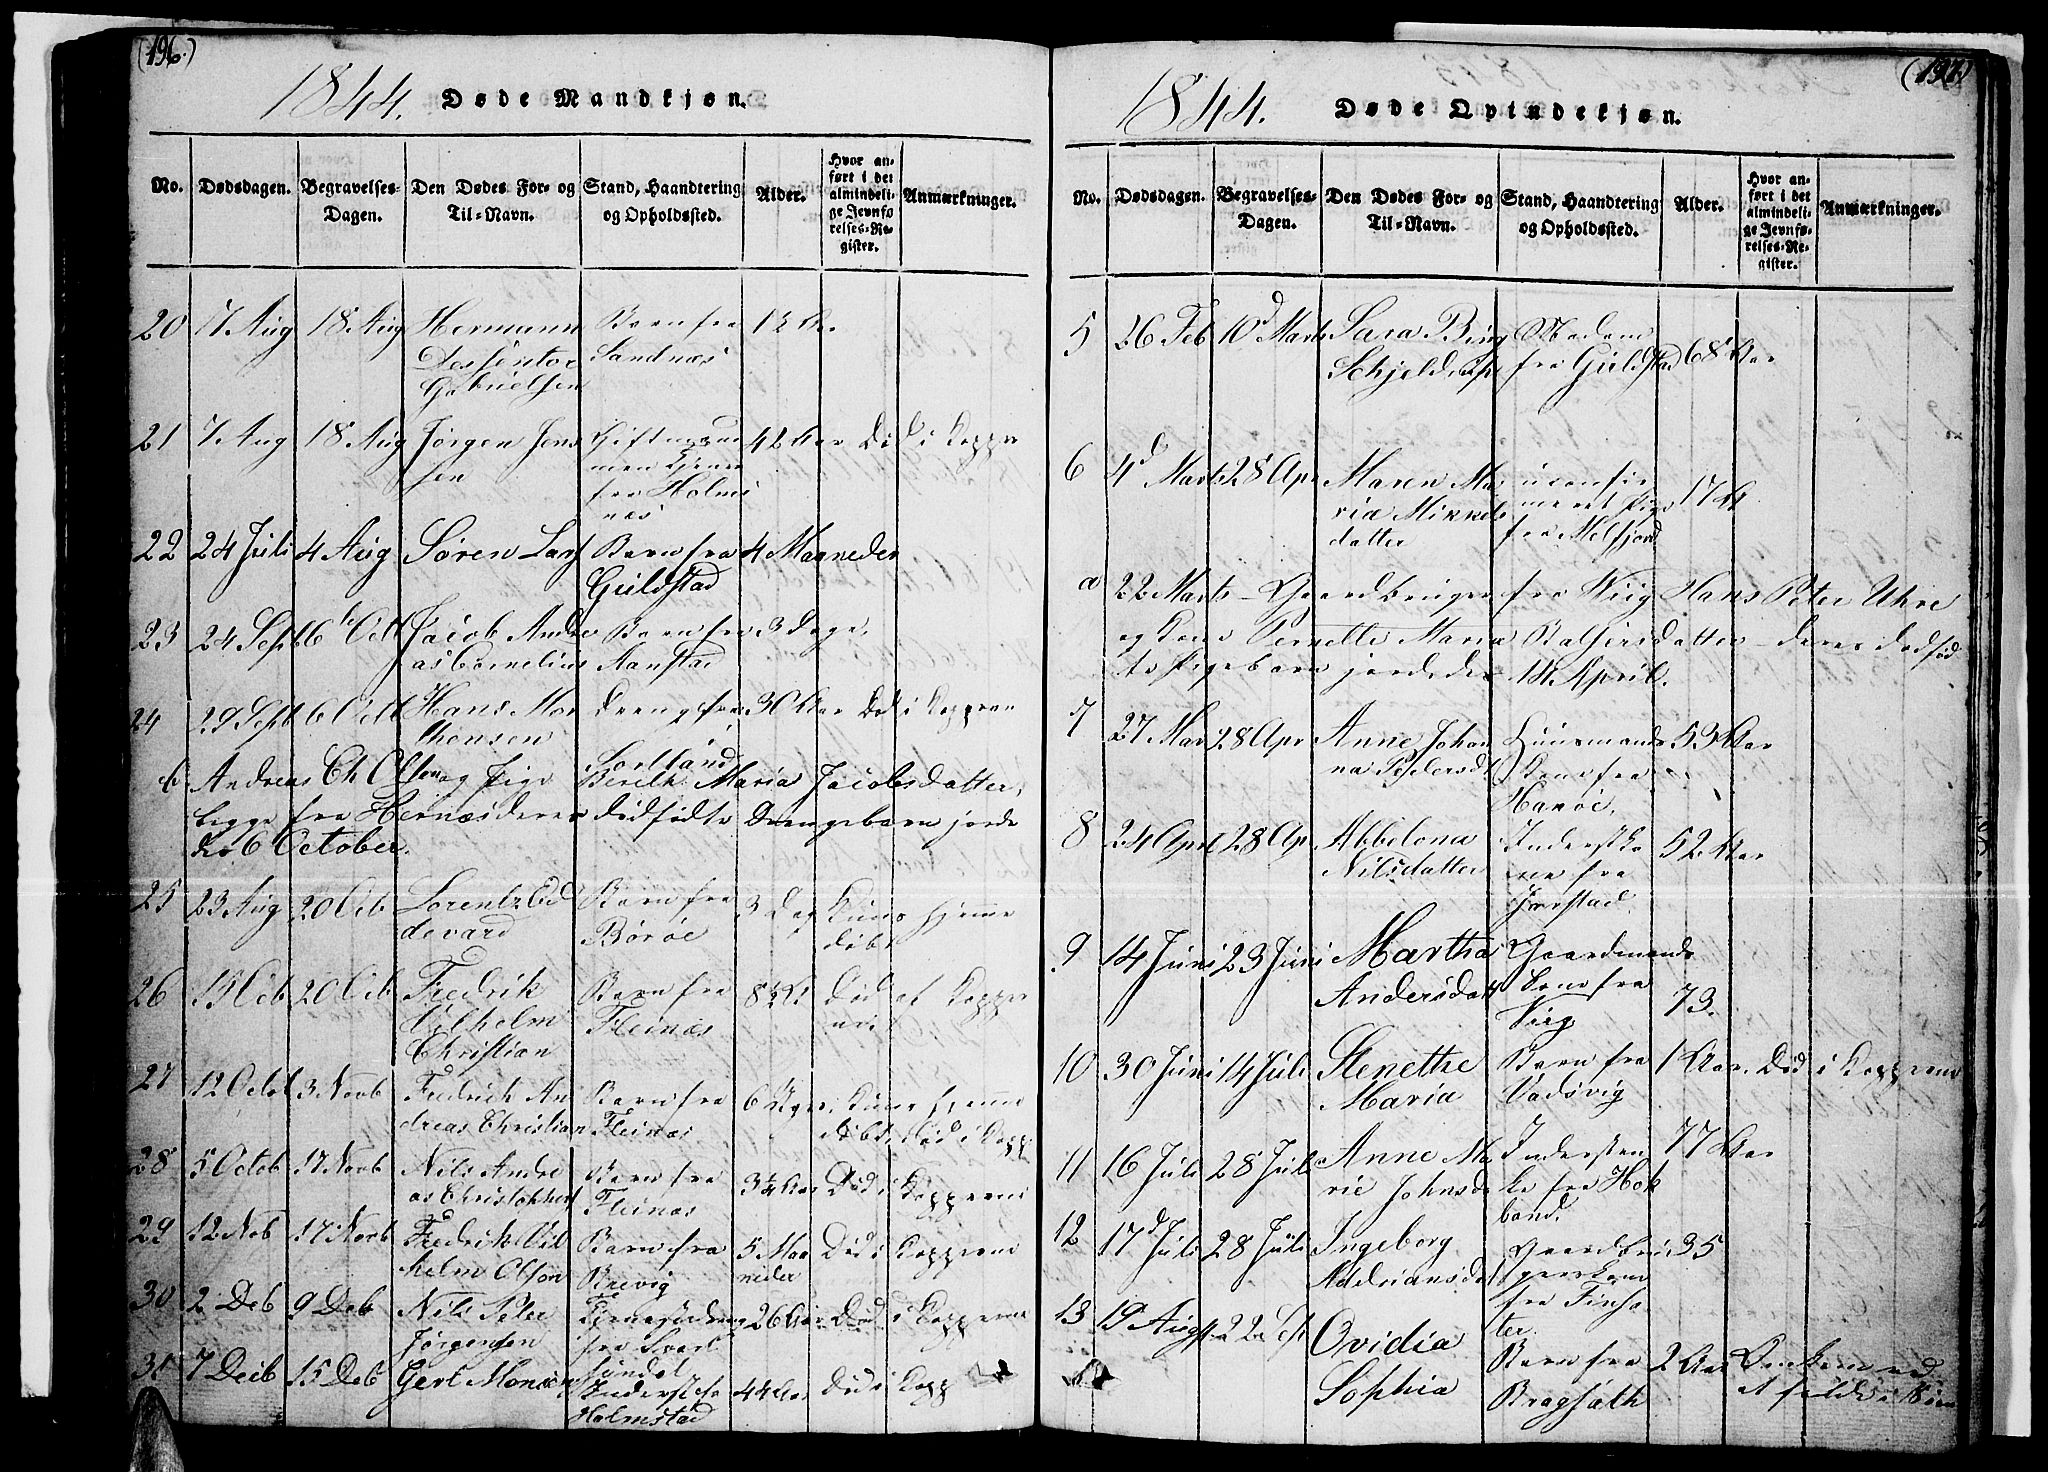 (196.)
1844. Døde Mandkjøn.
No. Dødsdagen. Begravelses-Dagen. Den Dødes For- og Til-Navn. Stand, Haandtering og Opholdssted. Alder. Hvor anført i det almindelige Jevnførelses-Register. Anmærkninger.
20 17 Aug 18 Aug Hermann Gabrielsen Barn fra Sandnæs
21 7 Aug 18 Aug Jørgen Jonssen fra Holmsnæs 42 Aar Død i Kopper
22 24 Juli 4 Aug Søren Lars Barn fra Guldstad 4 Maaneder
23 24 Sept 6 Oct Jacob Andreas Cornelius Barn fra Aanstad 3 Dage.
24 29 Sept 6 Oct Hans Morthensen Dreng fra Sortland 30 Aar Død i Kopperne
b Andreas Ch Olsen og Pige Bereth Maria Jacobsdatter,
begge fra deres dødfødte Drengebarn jorde
des 6 October.
25 23 Aug 20 Octb Lorentz Eddevard Barn fra Børøe 3 Dag Kuns hjemme døbt
26 20 Octb Fredrik Vilhelm Christian Barn fra Fleinæs Død af Kopperne
27 12 Octob 3 Novb Fredrik Andreas Christian Barn fra Fleinæs 6 Uger Kuns hjemme døbt, død i Kopp
28 5 Octob 17 Novb Nils Andreas Christopher Barn fra Fleinæs 3¼ Aar Død i Kopperne
29 12 Nob 17 Novb Fredrik Vilhelm Olsen Barn fra Brevig 5 Maaneder Død i Kopperne
30 2 Deb 9 Deb Nils Peter Jørgensen Tjenestedreng fra Svartsundet 26 Aar Død i Kopperne
31 7 Decb 15 Deb Gert Monsen Inderst fra Holmstad 44 Aar Død i Kopp
(197.)
1844. Døde Qvindekjøn.
No. Dødsdagen. Begravelses-Dagen. Den Dødes For- og Til-Navn. Stand, Haandtering og Opholdssted. Alder. Hvor anført i det almindelige Jevnførelses-Register. Anmærkninger.
5 26 Feb 10d Marts Sara Bing Schjelderup Madam fra Guldstad 68 Aar
6 4d Marts 28 Apr Maren Maria Mikkelsdatter uconfirmeret Pige fra Melfjord 17 A
a 22 Marts – Gaardbruger fra Wiig Hans Peter Uhre
og Kone Pernelle Maria Balzersdatter – deres dødfød
te Pigebarn jordedes 14 April.
7 27 Mar 28 Apr Anne Johanna Pedersdt Huusmands Kone fra Hanøe, 53 Aar
8 24 Apri 28 Ap Abbelona Nilsdatter Inderstkone fra Jørstad. 52 Aar
9 14 Juni 23 Juni Martha Andersdatt Gaardmands Kone fra Viig 73.
10 30 Juni 14 Juli Stenethe Maria Barn fra Vadsvig 1 Aar. Død i Kopperne
11 16 Juli 28 Juli Anne Marie Johnsda Inderstenke fra Hokland. 77 Aar
12 17d Juli 28 Juli Ingeborg Adriansdat Gaardbrugerskone fra Finsæter. 35
13 19 Aug 22 Ovidia Sophia Barn fra Bragsæth 2 Aar